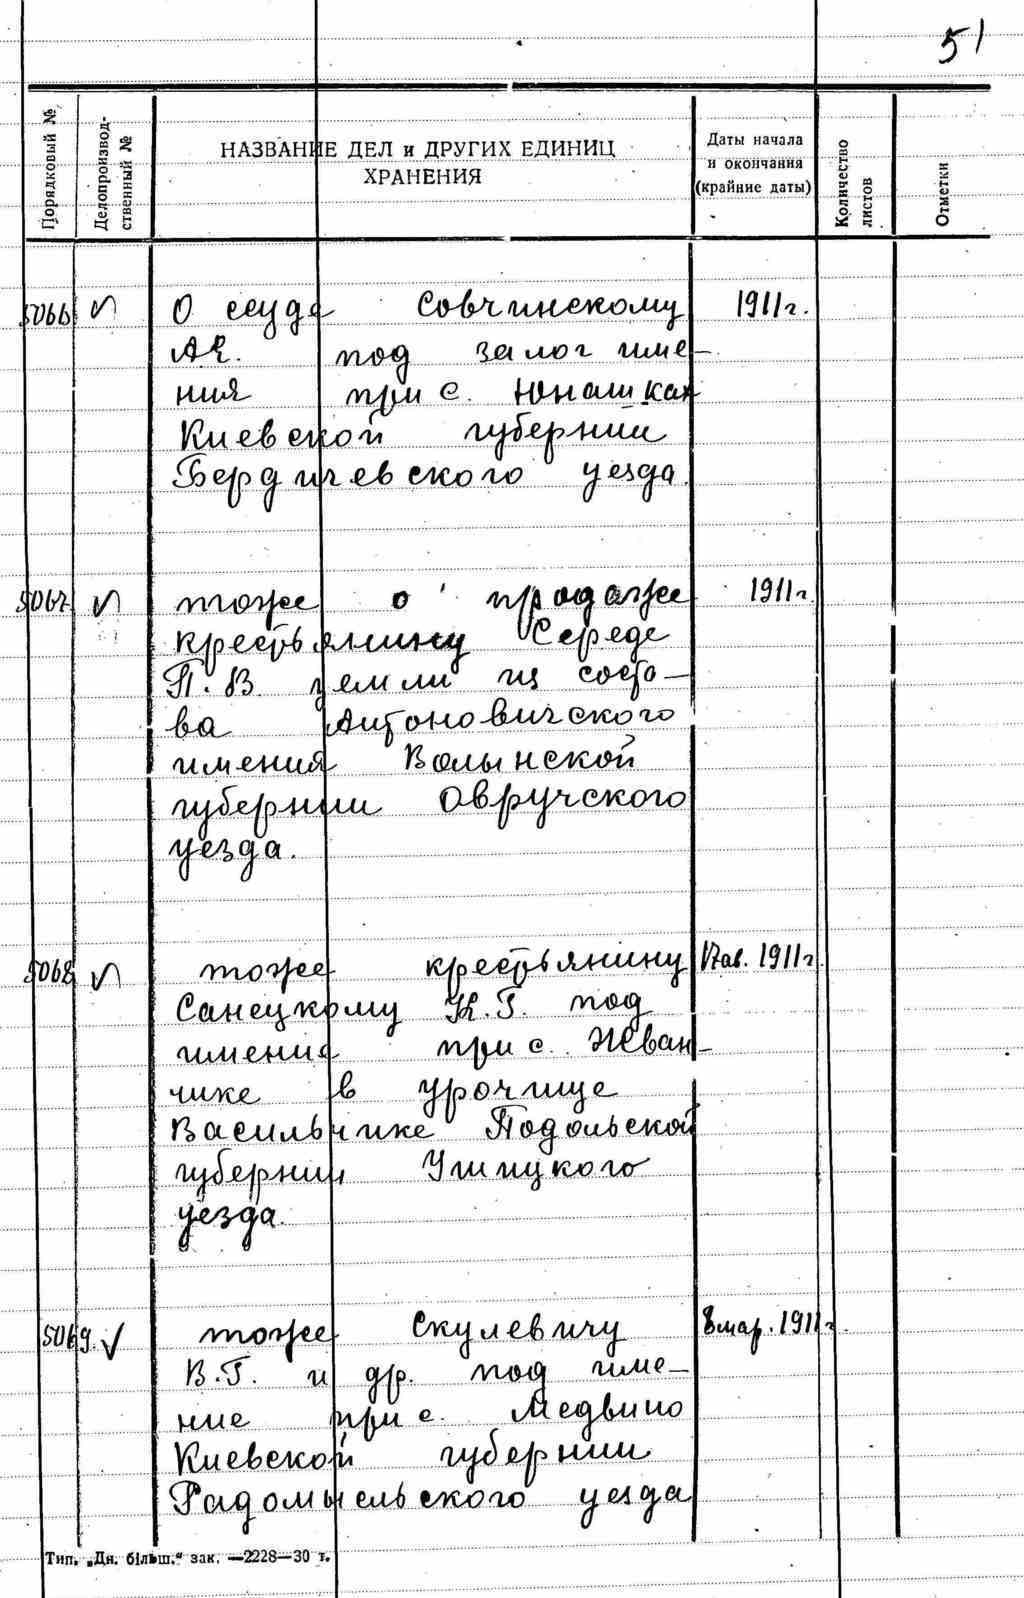 51
Порядковый №
Делопроизвод-
ственный №
НАЗВАНИЕ ДЕЛ и ДРУГИХ ЕДИНИЦ
ХРАНЕНИЯ
Даты начала
и окончания
(крайние даты)
Количество
листов
Отметки
5066 О ссуде Совчинскому 1911г.
под залог име-
ния при с. Юнашках
Киевской губернии
Бердичевского уезда.
5067 тоже о продаже 1911г.
крестьянину Середе
П.В. земли из соста-
ва Антоновичского
имения Волынской
губернии Овручского
уезда.
5068 тоже крестьянину 17ав. 1911г.
Санецкому К.Г. под
имения при с. Жван-
чике в урочище
Васильчике Подольской
губернии Ушицкого
уезда.
5069. тоже Скулевичу 8мар. 1911г.
В.Г. и др. под име-
ние при с. Медвино
Киевской губернии
Радомысельского уезда
Тип. „Дн. більш.“ зак. —2228—30 т.